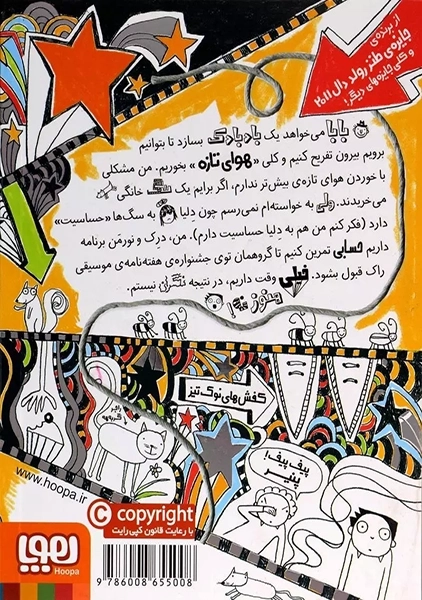 از برنده‌ی
جایزه‌ی طنز رولد دال ۲۰۱۱
و کلی جایزه‌های دیگر!
بابا می‌خواهد یک بادبادک بسازد تا بتوانیم
برویم بیرون تفریح کنیم و کلی «هوای تازه» بخوریم. من مشکلی
با خوردن هوای تازه‌ی بیش‌تر ندارم، اگر برایم یک سگ خانگی
می‌خریدند. ولی به خواسته‌ام نمی‌رسم چون دِلیا به سگ‌ها «حساسیت»
دارد (فکر کنم من هم به دِلیا حساسیت دارم). من، درک و نورمَن برنامه
داریم حسابی تمرین کنیم تا گروهمان توی جشنواره‌ی هفته‌نامه‌ی موسیقی
راک قبول بشود. خیلی وقت داریم، در نتیجه نگران نیستم.
هنوز نه!
کفش‌های نوک‌تیز
پیف پیف!
پنیر
www.hoopa.ir
copyright
با رعایت قانون کپی رایت
هوپا
Hoopa
9 786008 655008